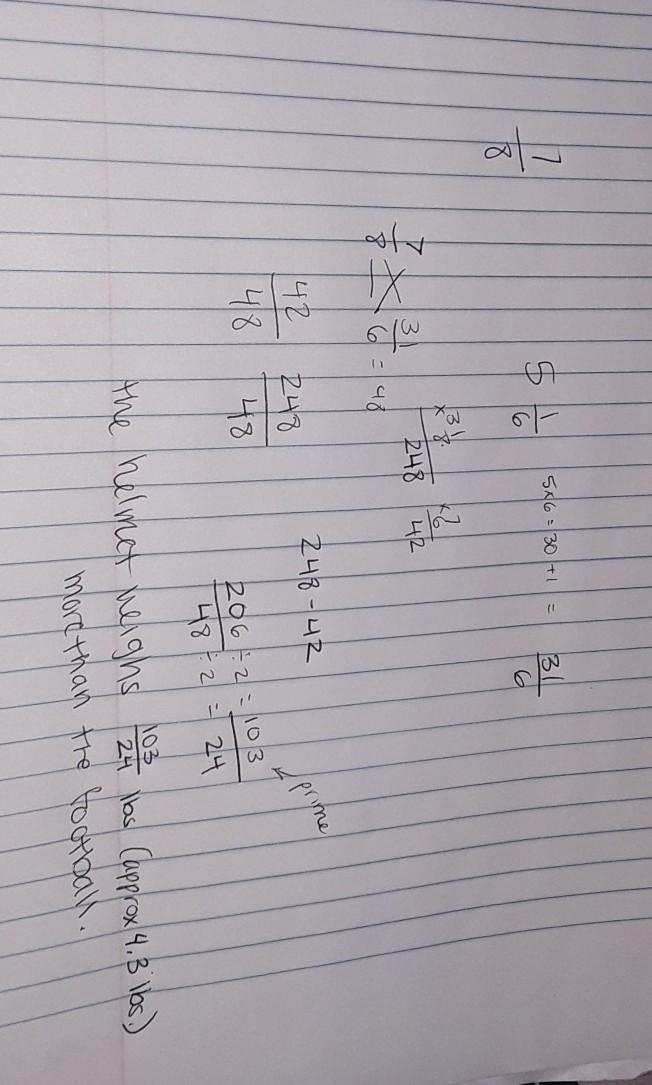 7/8 5 1/6 5x6 = 30 + 1 = 31/6
7/8 X 31/6 = 48
31 x 8 248 7 x 6 42
42/48 248/48 248 - 42
206/48 ÷2 ÷2 = 103/24 prime
the helmet weighs 103/24 lbs (approx 4.3 lbs.)
more than the football.